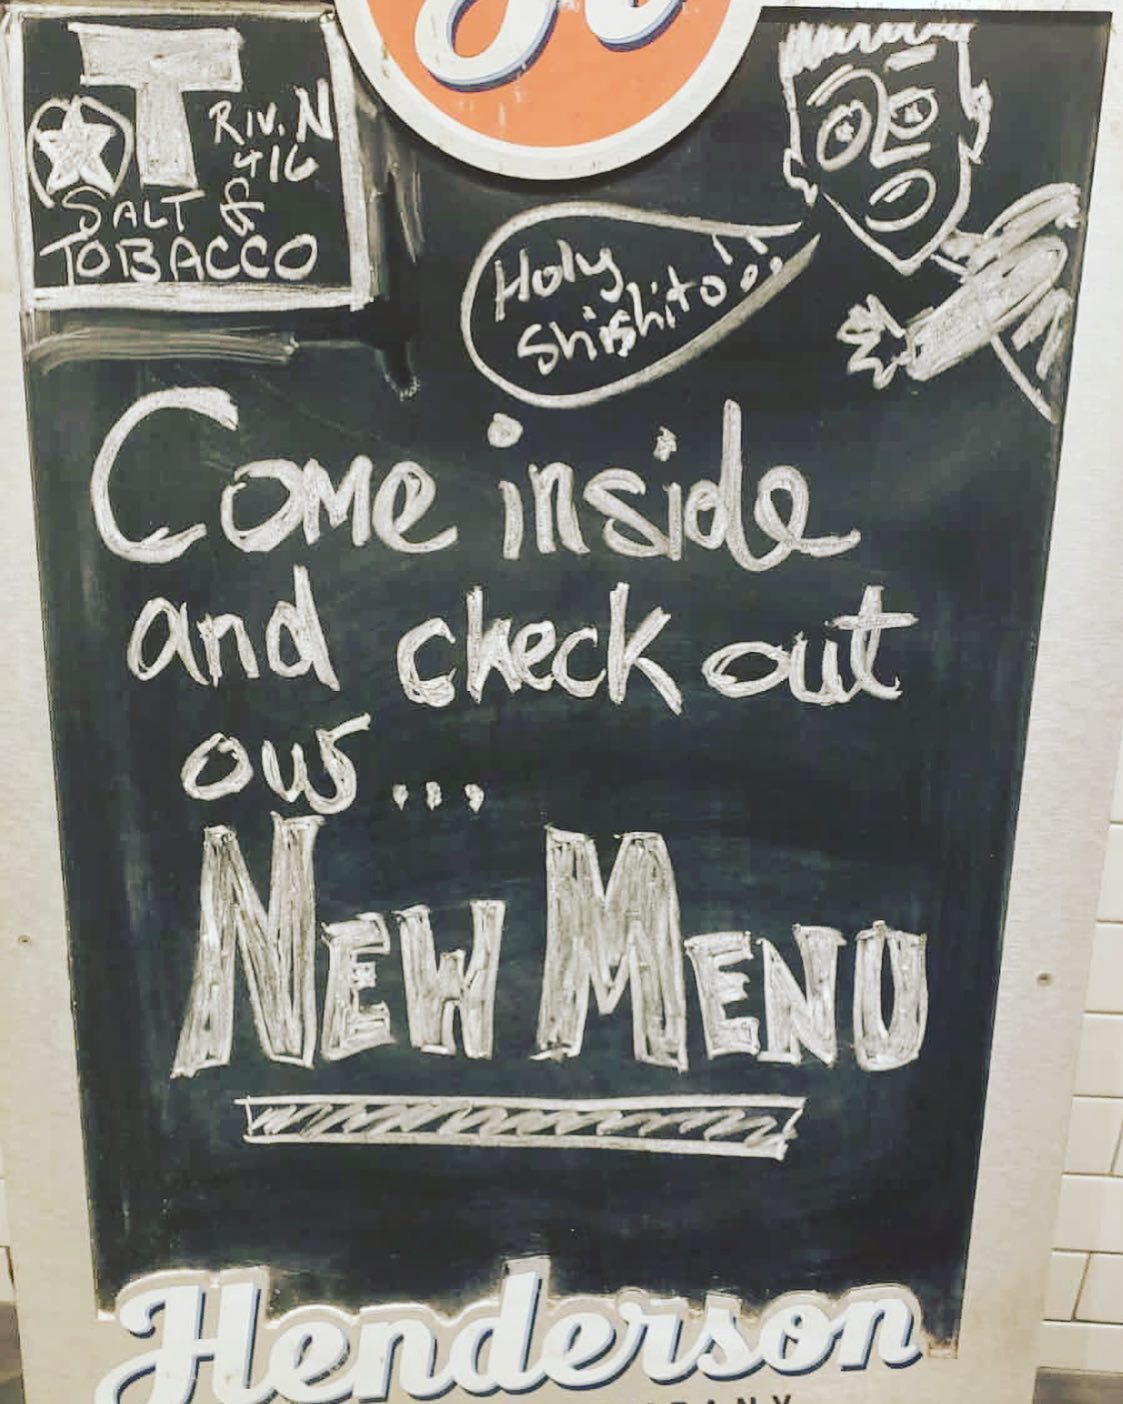 T
RIV. N
416
SALT &
TOBACCO
Holy
Shishito!!
Come inside
and check out
our...
NEW MENU
Henderson